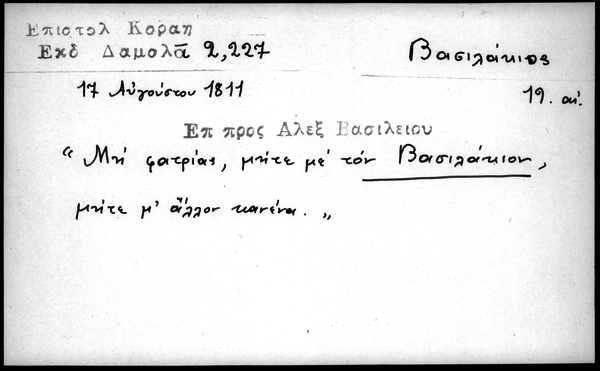 Επιστολ Κοραη
Εκδ Δαμαλᾶ 2,227
Βασιλάκιος
17 Αὐγούστου 1811
19. αἰ.
Επ προς Αλεξ Βασιλειου
“ Μή φατρίας, μήτε μέ τόν Βασιλάκιον,
μήτε μ' ἄλλον κανένα. „